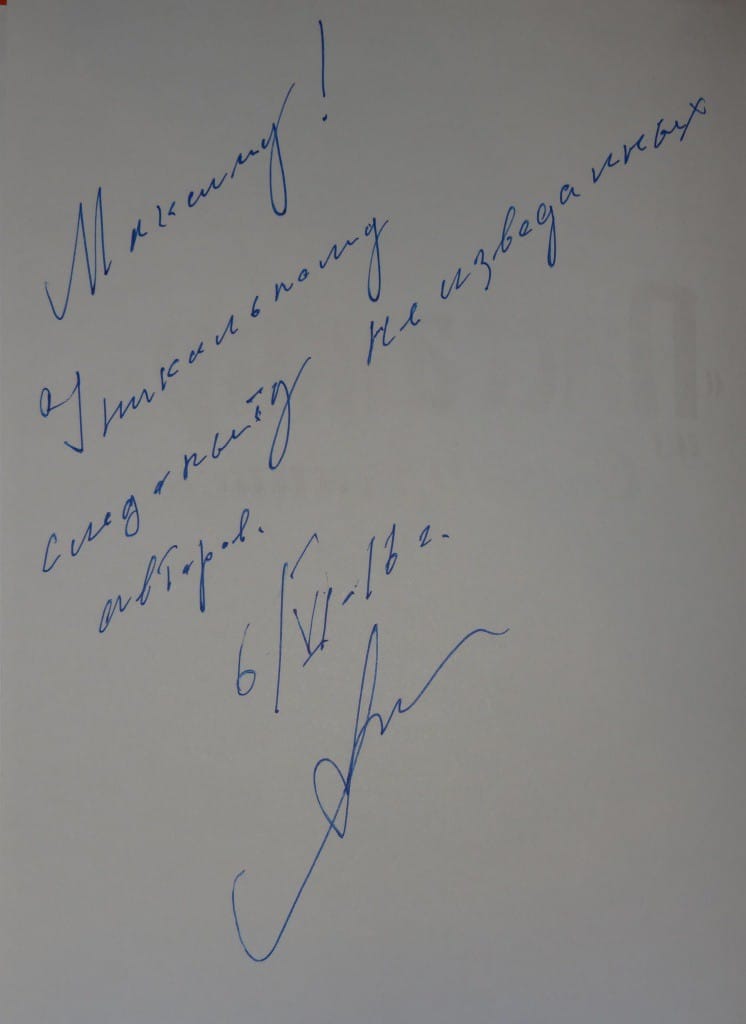 Максиму!
Уникальному
следопыту неизведанных
авторов.
6/VI-16 г.